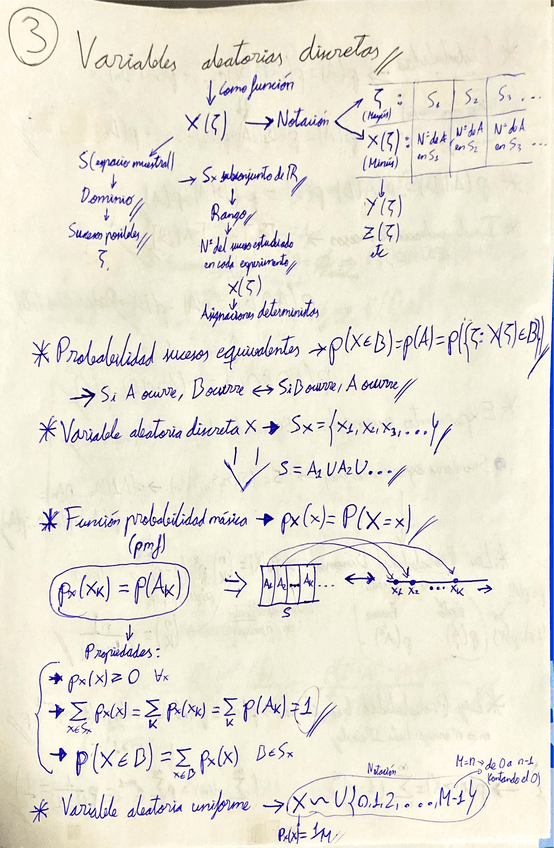 3
Variables aleatorias discretas
Como función
X(ζ) → Notación
ζ : S₁ S₂ S₃ ...
(Mayús)
X(ζ) : Nº de A en S₁ Nº de A en S₂ Nº de A en S₃ ...
(Minús)
Y(ζ)
Z(ζ)
etc
S(espacio muestral)
Dominio
Sucesos posibles
ζ
→ Sx subconjunto de ℝ
Rango
Nº del suceso estudiado
en cada experimento
X(ζ)
Asignaciones deterministas
* Probabilidad sucesos equivalentes → p(X∈B)=p(A)=p({ζ: X(ζ)∈B})
→ Si A ocurre, B ocurre ↔ Si B ocurre, A ocurre
* Variable aleatoria discreta X → Sx = {x₁, x₂, x₃, ...}
S = A₁ ∪ A₂ ∪ ...
* Función probabilidad másica → px(x) = P(X=x)
(pmf)
px(xK) = p(AK) ⇒ A₁ A₂ ... AK ... ↔ x₁ x₂ ... xK
S
Propiedades:
→ px(x) ≥ 0 ∀x
→ ∑x∈Sx px(x) = ∑K px(xK) = ∑K p(AK) = 1
→ p(X∈B) = ∑x∈B px(x) B∈Sx
Notación
M=n → de 0 a n-1,
contando el 0)
* Variable aleatoria uniforme → X ~ U{0,1,2, ..., M-1}
Px(x) = 1/M